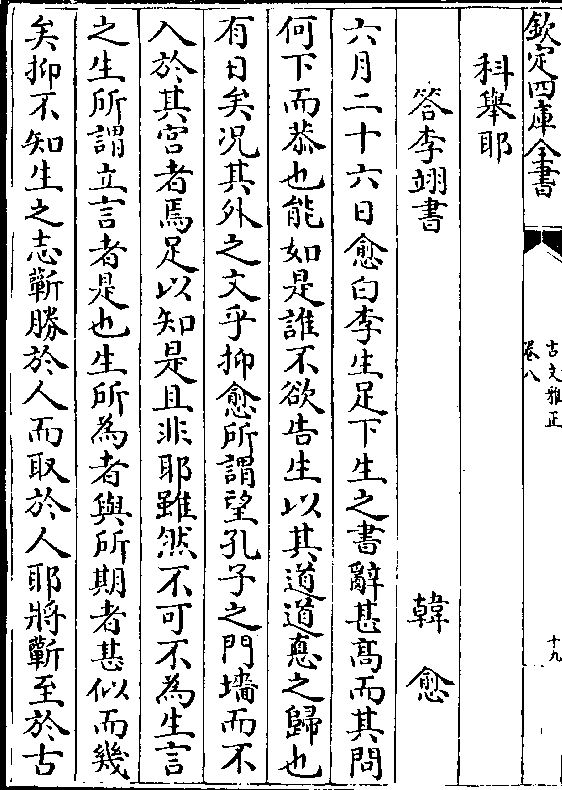 欽定四庫全書
古文雅正
卷八
十九
科舉耶
答李翊書
韓愈
六月二十六日愈白李生足下生之書辭甚高而其問
何下而恭也能如是誰不欲告生以其道道悳之歸也
有日矣况其外之文乎抑愈所謂望孔子之門墻而不
入於其宫者焉足以知是且非耶雖然不可不為生言
之生所謂立言者是也生所為者與所期者甚似而幾
矣抑不知生之志蘄勝於人而取於人耶將蘄至於古